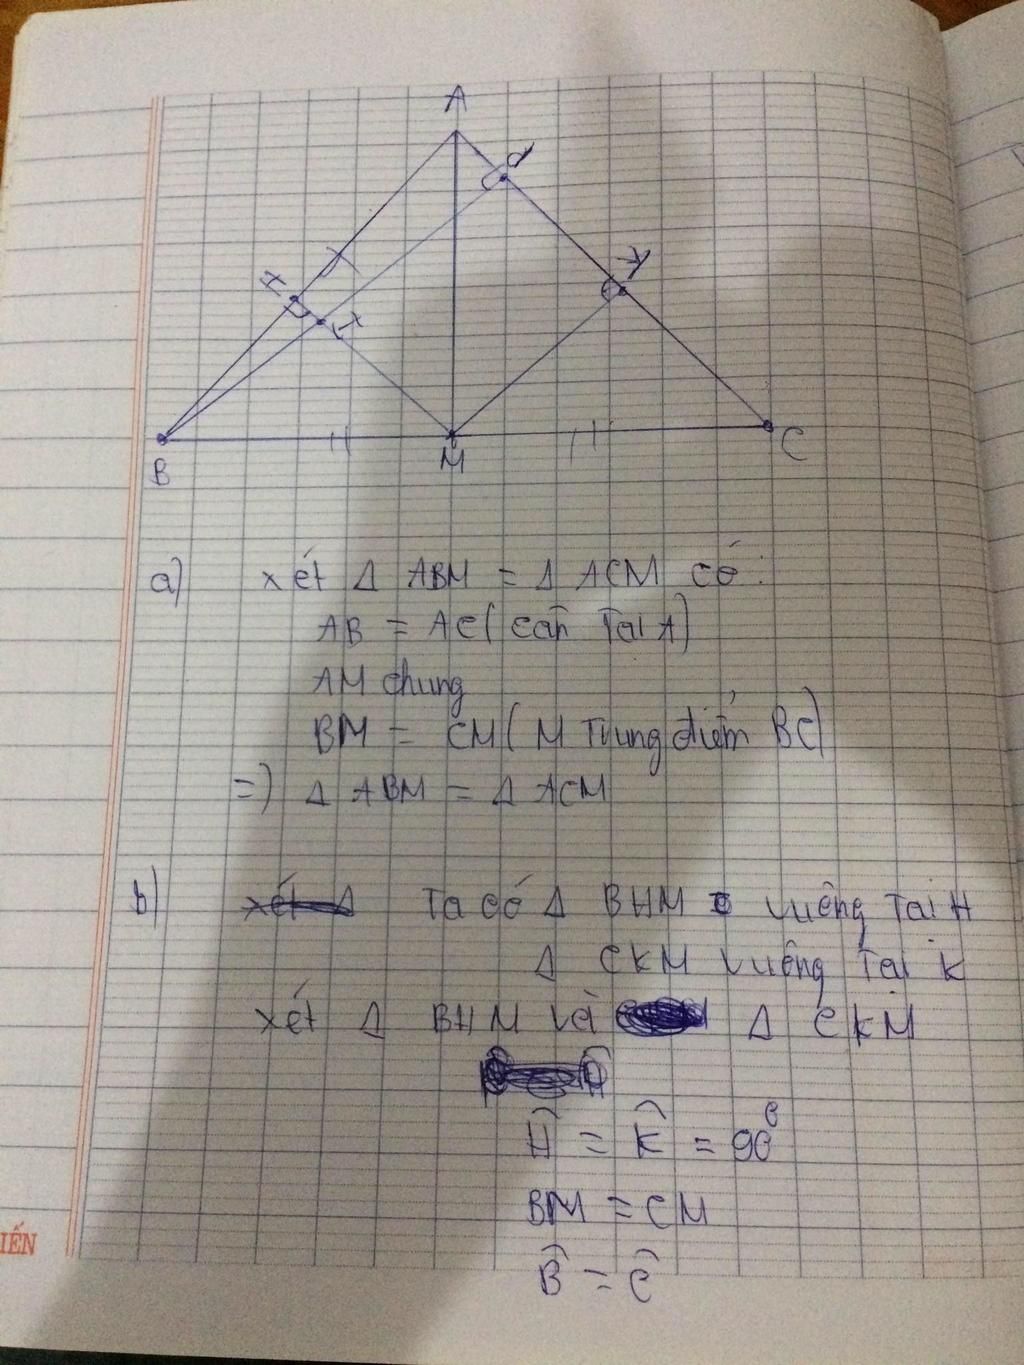 A
H
K
I
B
M
C
a) xét Δ ABM = Δ ACM có:
AB = AC (cân Tại A)
AM chung
BM = CM (M Trung điểm BC)
=) Δ ABM = Δ ACM
b) Ta có Δ BHM vuông Tại H
Δ CKM vuông Tại K
xét Δ BHM và Δ CKM
Ĥ = K̂ = 90°
BM = CM
B̂ = Ĉ
IẾN